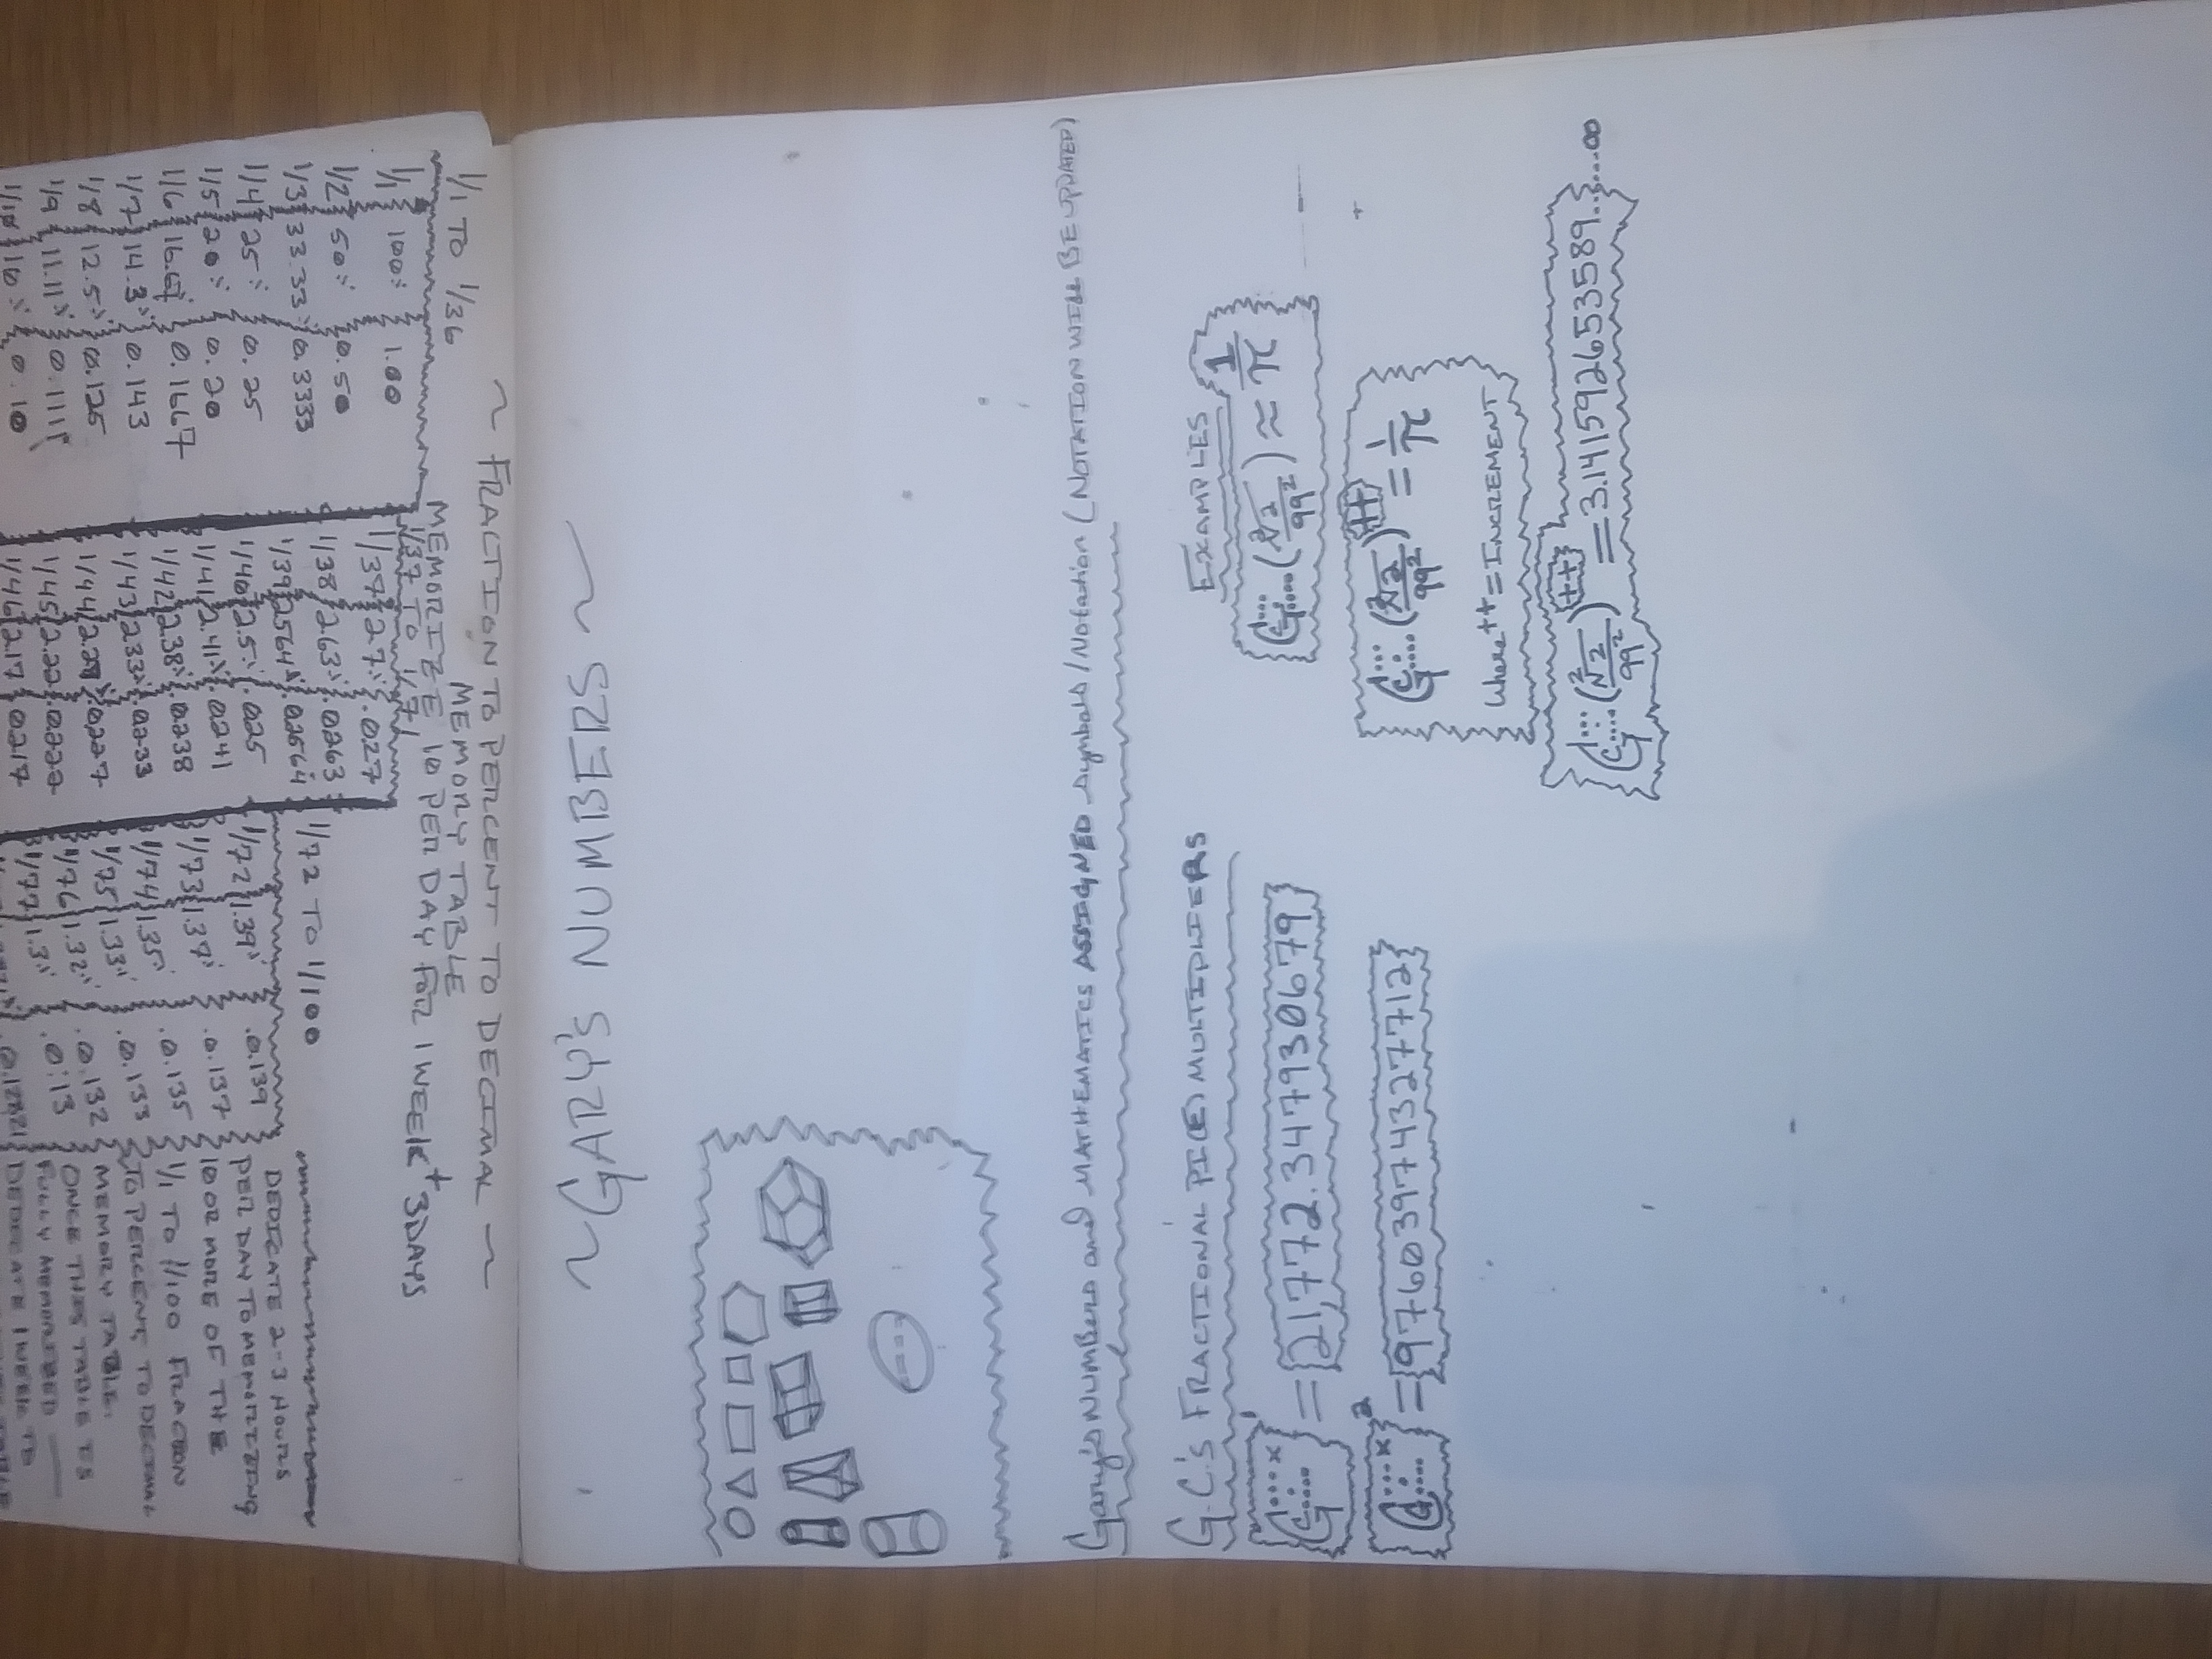 ~ FRACTION TO PERCENT TO DECIMAL ~
MEMORY TABLE
MEMORIZE 10 PER DAY FOR 1 WEEK + 3 DAYS
1/1 TO 1/36
1/1 100% 1.00
1/2 50% 0.50
1/3 33.33% 0.3333
1/4 25% 0.25
1/5 20% 0.20
1/6 16.67% 0.1667
1/7 14.3% 0.143
1/8 12.5% 0.125
1/9 11.11% 0.1111
1/10 10% 0.10
1/37 TO 1/71
1/37 2.7% .027
1/38 2.63% .0263
1/39 2.564% .02564
1/40 2.5% .025
1/41 2.41% .0241
1/42 2.38% .0238
1/43 2.33% .0233
1/44 2.27% .0227
1/45 2.22% .0222
1/46 2.17% .0217
1/72 TO 1/100
1/72 1.39% .0.139
1/73 1.37% .0.137
1/74 1.35% .0.135
1/75 1.33% .0.133
1/76 1.32% .0.132
1/77 1.3% .0.13
DEDICATE 2-3 HOURS
PER DAY TO MEMORIZING
10 OR MORE OF THE
1/1 TO 1/100 FRACTION
TO PERCENT, TO DECIMAL
MEMORY TABLE.
ONCE THIS TABLE IS
FULLY MEMORIZED
DEDICATE 1 WEEK TO
~GARY'S NUMBERS~
Gary's NUMBERS and MATHEMATICS ASSIGNED Symbols/Notation (NOTATION WILL BE UPDATED)
G.C.'s FRACTIONAL PI(E) MULTIPLIERS
= 21,772.347930679
= 97603974327712
EXAMPLES
(²√2/99²) ≈ 1/π
(²√2/99²)++ = 1/π
Where ++ = INCREMENT
(²√2/99²)++ = 3.141592653589.......∞